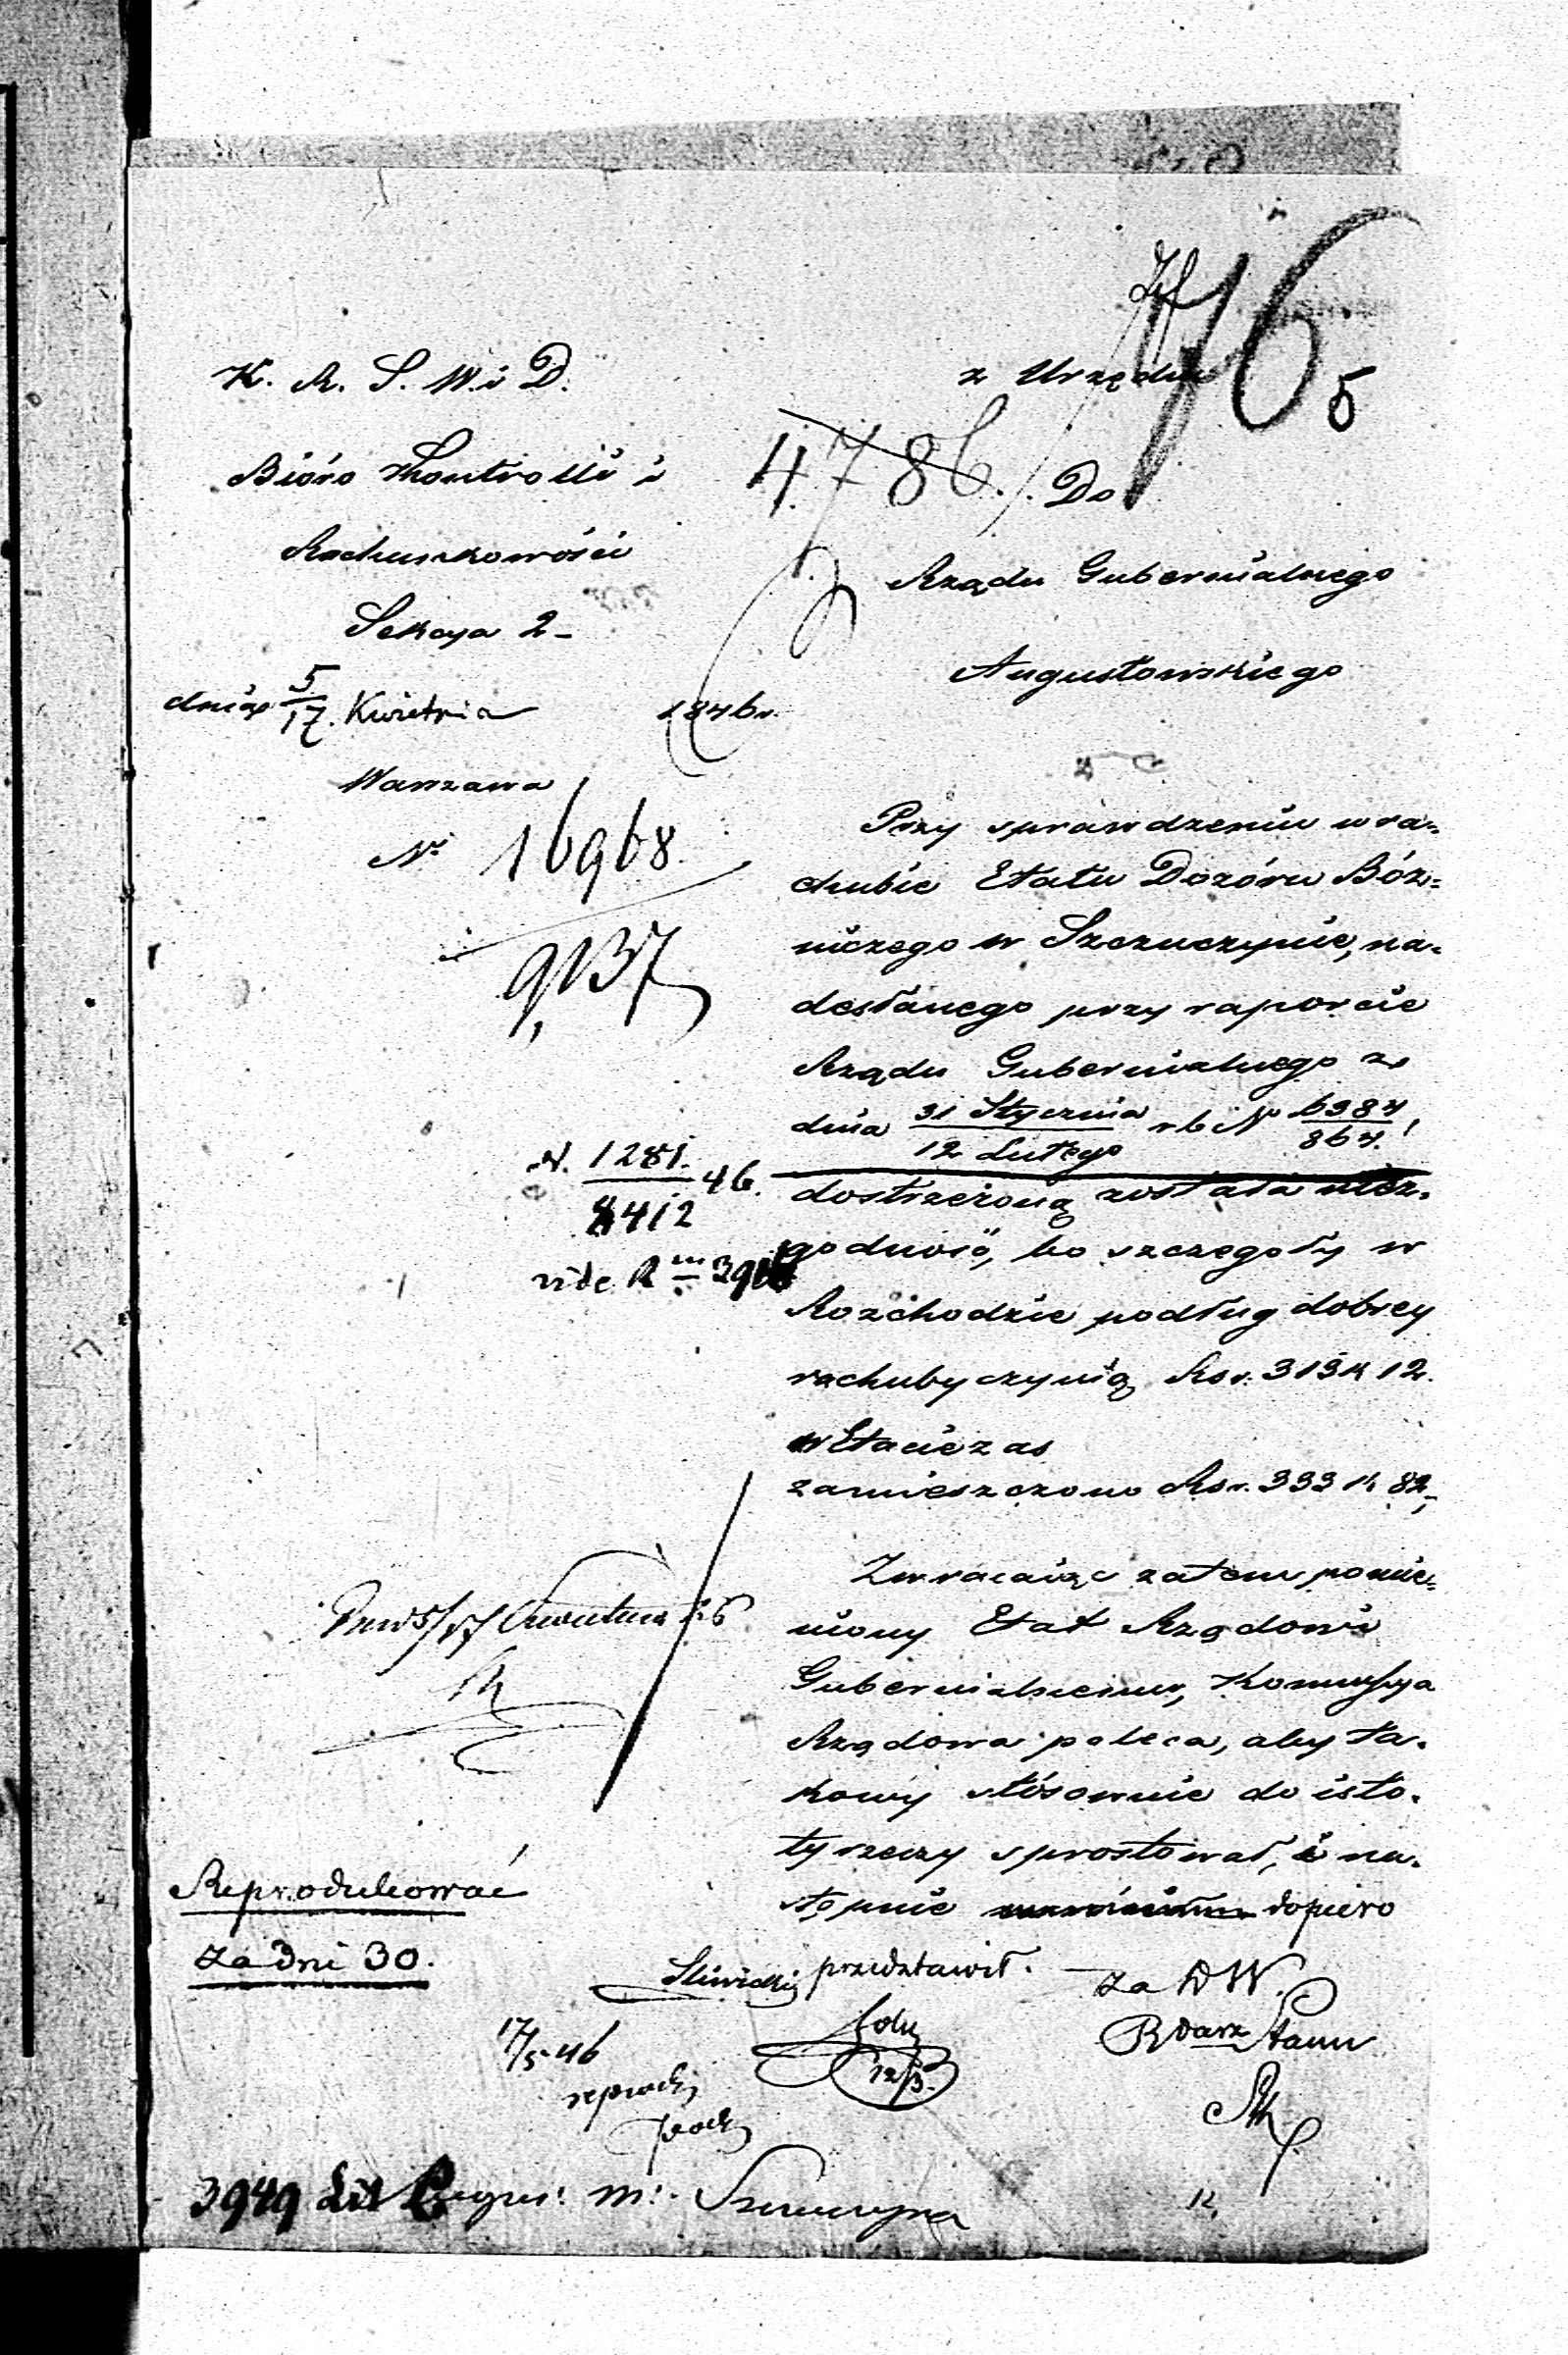 K. R. S. W. i D.
Bióro Kontrolli i
Rachunkowości
Sekcya 2 -
dnia 5/17. Kwietnia 1846 r.
Warszawa
No 16968
9137
N. 1281/8412 46.
vide R
z Urzędu
76
5
4786
Do
Rządu Gubernialnego
Augustowskiego
Przy sprawdzeniu w ra-
chubie Etatu Dozóru Bóż-
niczego w Szczuczynie, na-
desłanego przy raporcie
Rządu Gubernialnego z
dnia 31 Stycznia/12 Lutego r b No 6384/864.
dostrzeżoną została niez-
godność, bo szczegóły w
Rozchodzie podług dobrey
rachuby czynią Rsr. 313 k 12.
w Etacie zas
zamieszczono Rsr. 333 k 82,
Zwracaiąc zatem pomie-
niony Etat Rządowi
Gubernialnemu, Kommissya
Rządowa poleca, aby ta-
kowy stósownie do isto-
ty rzeczy sprostował, i na-
stępnie dopiero
przedstawił.
5/17 Kwietnia 46
Reprodukować
za dni 30.
Śliwicki
za D W.
17/5 46
12/3.
3949 Lit Szczuczyna
12